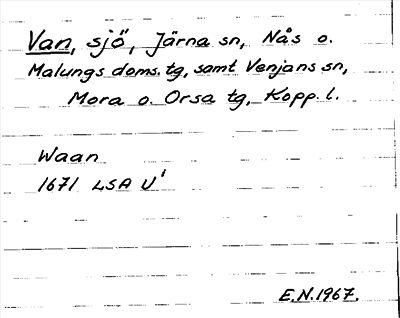 Van, sjö, Järna sn, Nås o.
Malungs doms. tg, samt Venjans sn,
Mora o. Orsa tg, Kopp. l.
Waan
1671 LSA U'
E.N. 1967.